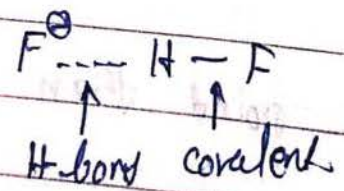 F⊖ ---- H — F
H-bond covalent